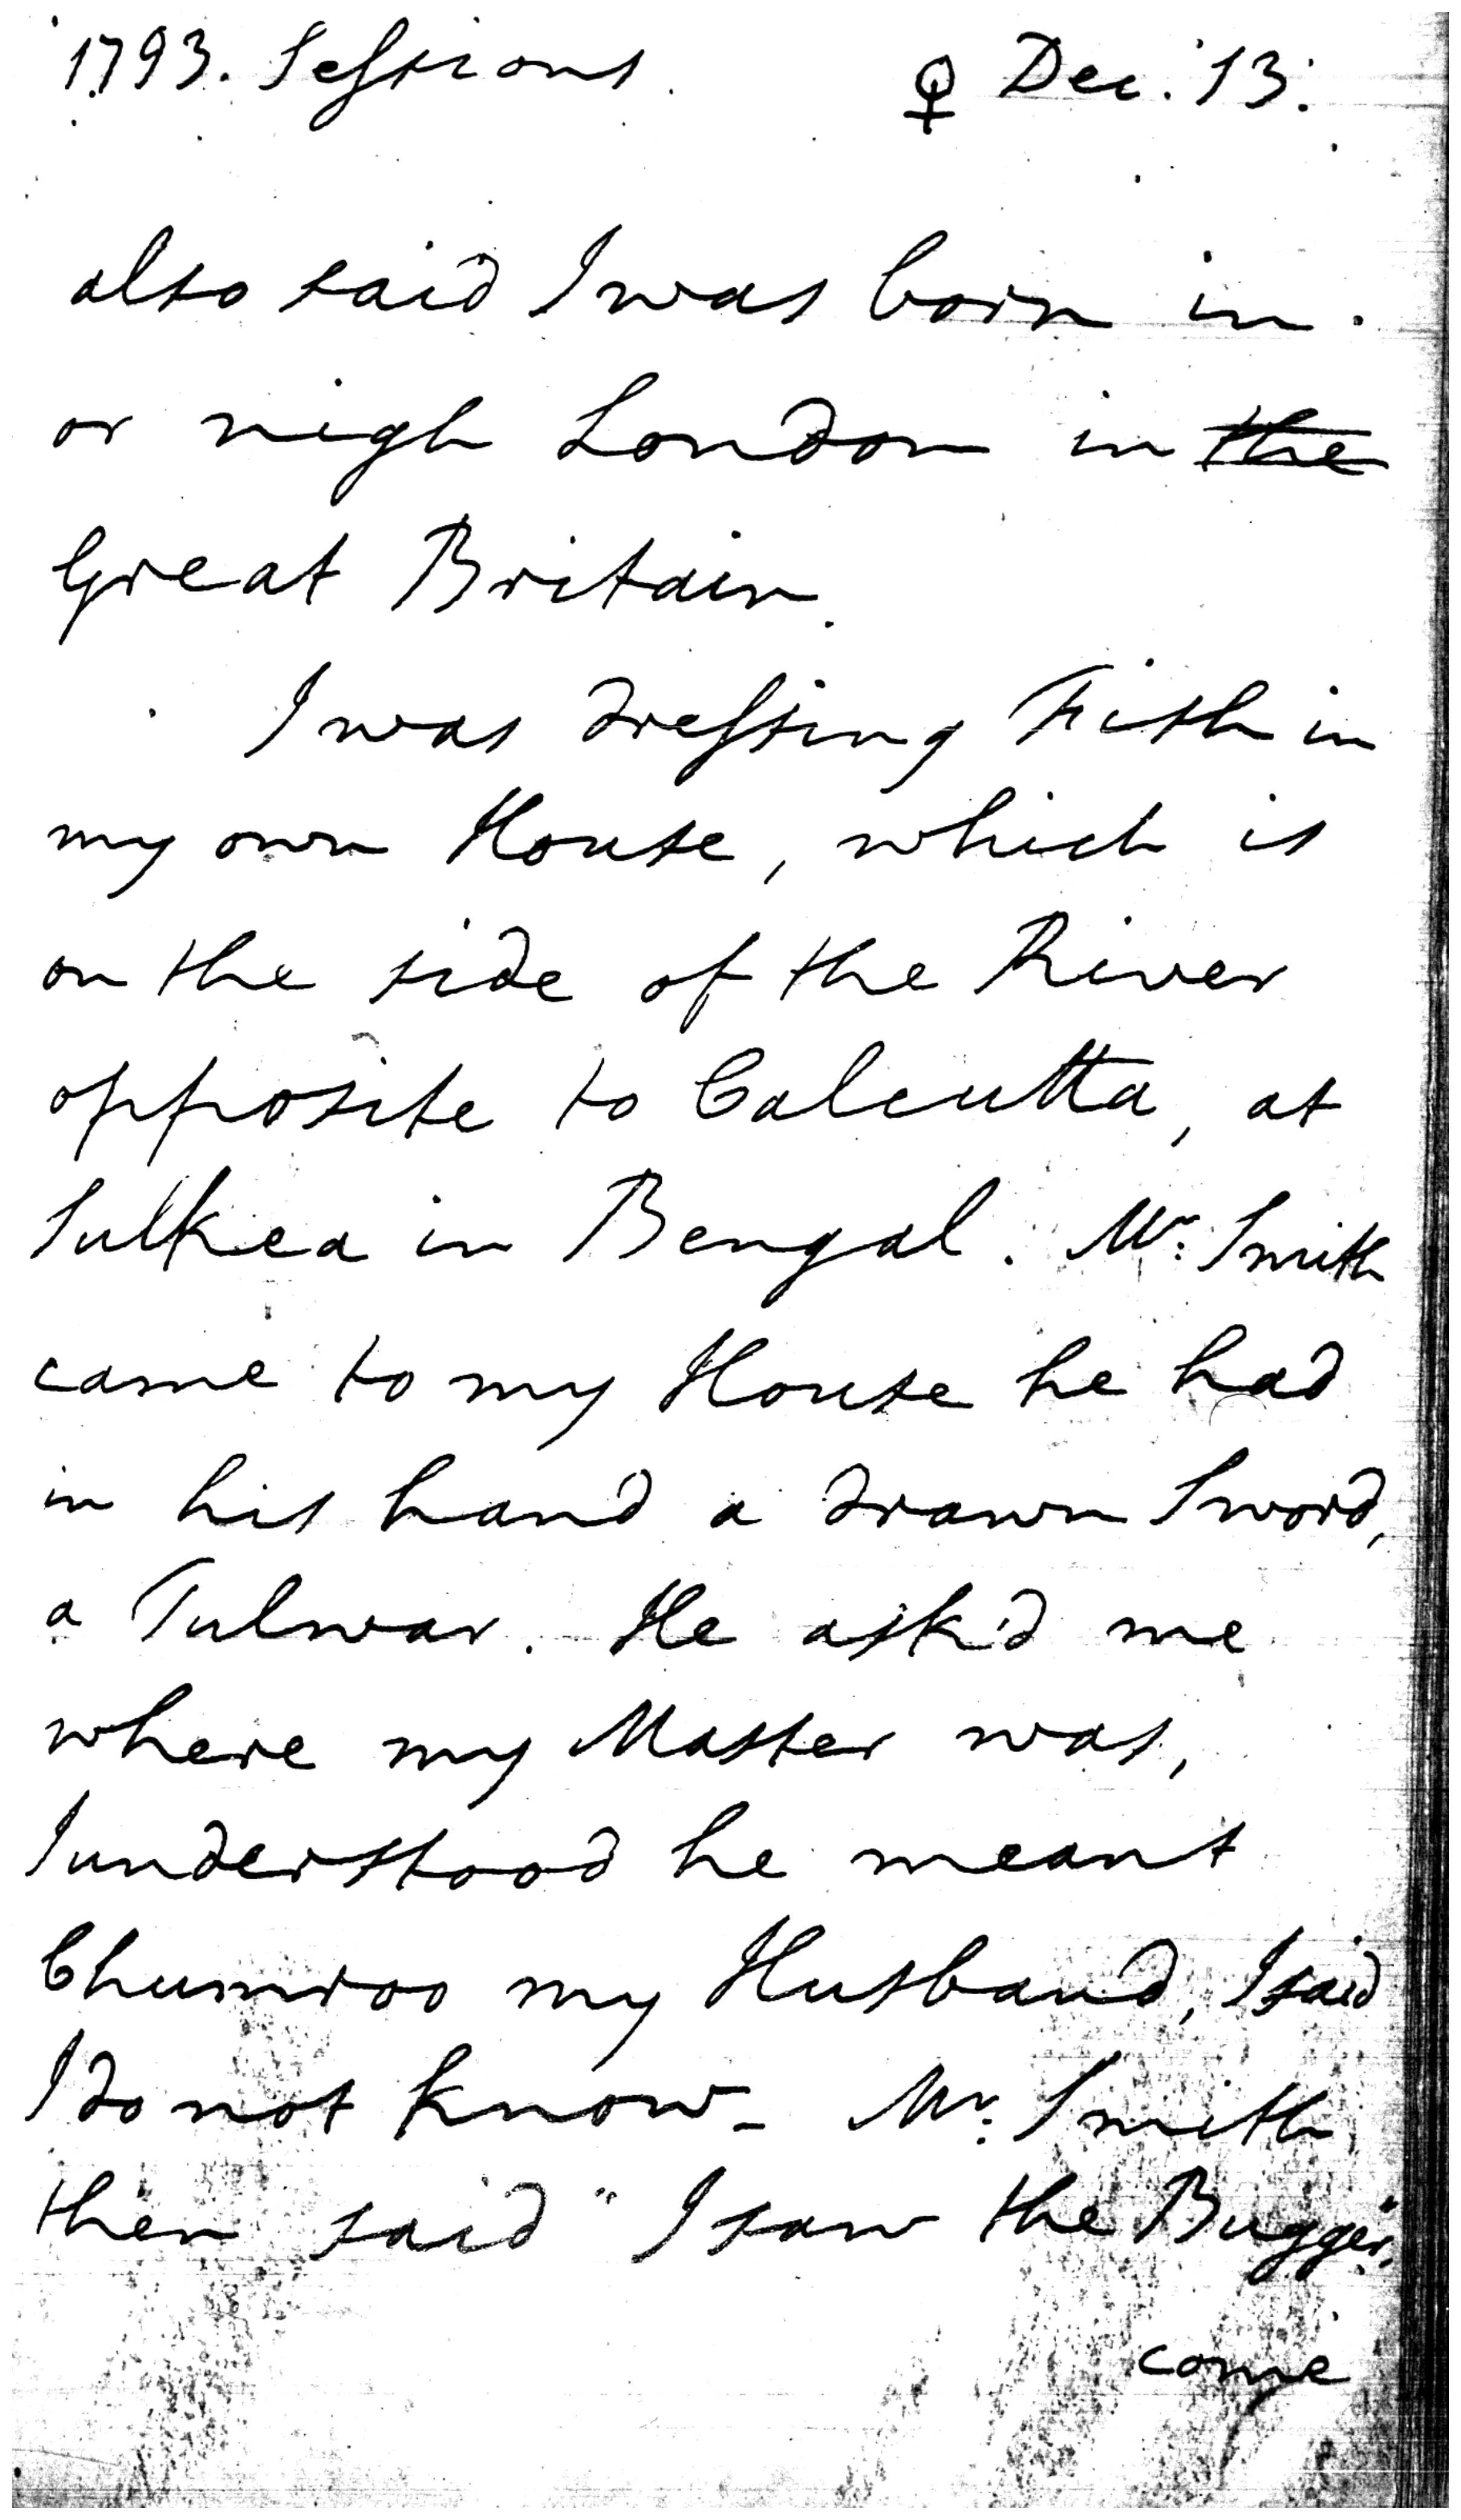 1793. Sessions. ♀ Dec. 13.
also said I was born in
or nigh London in ~~the~~
Great Britain.
I was dressing Fish in
my own House, which is
on the side of the River
opposite to Calcutta, at
Sulkea in Bengal. Mr. Smith
came to my House he had
in his hand a drawn Sword,
a Tulwar. He ask'd me
where my Master was,
I understood he meant
Chumroo my Husband, I said
I do not know_ Mr. Smith
then said "I saw the Bugger,
come